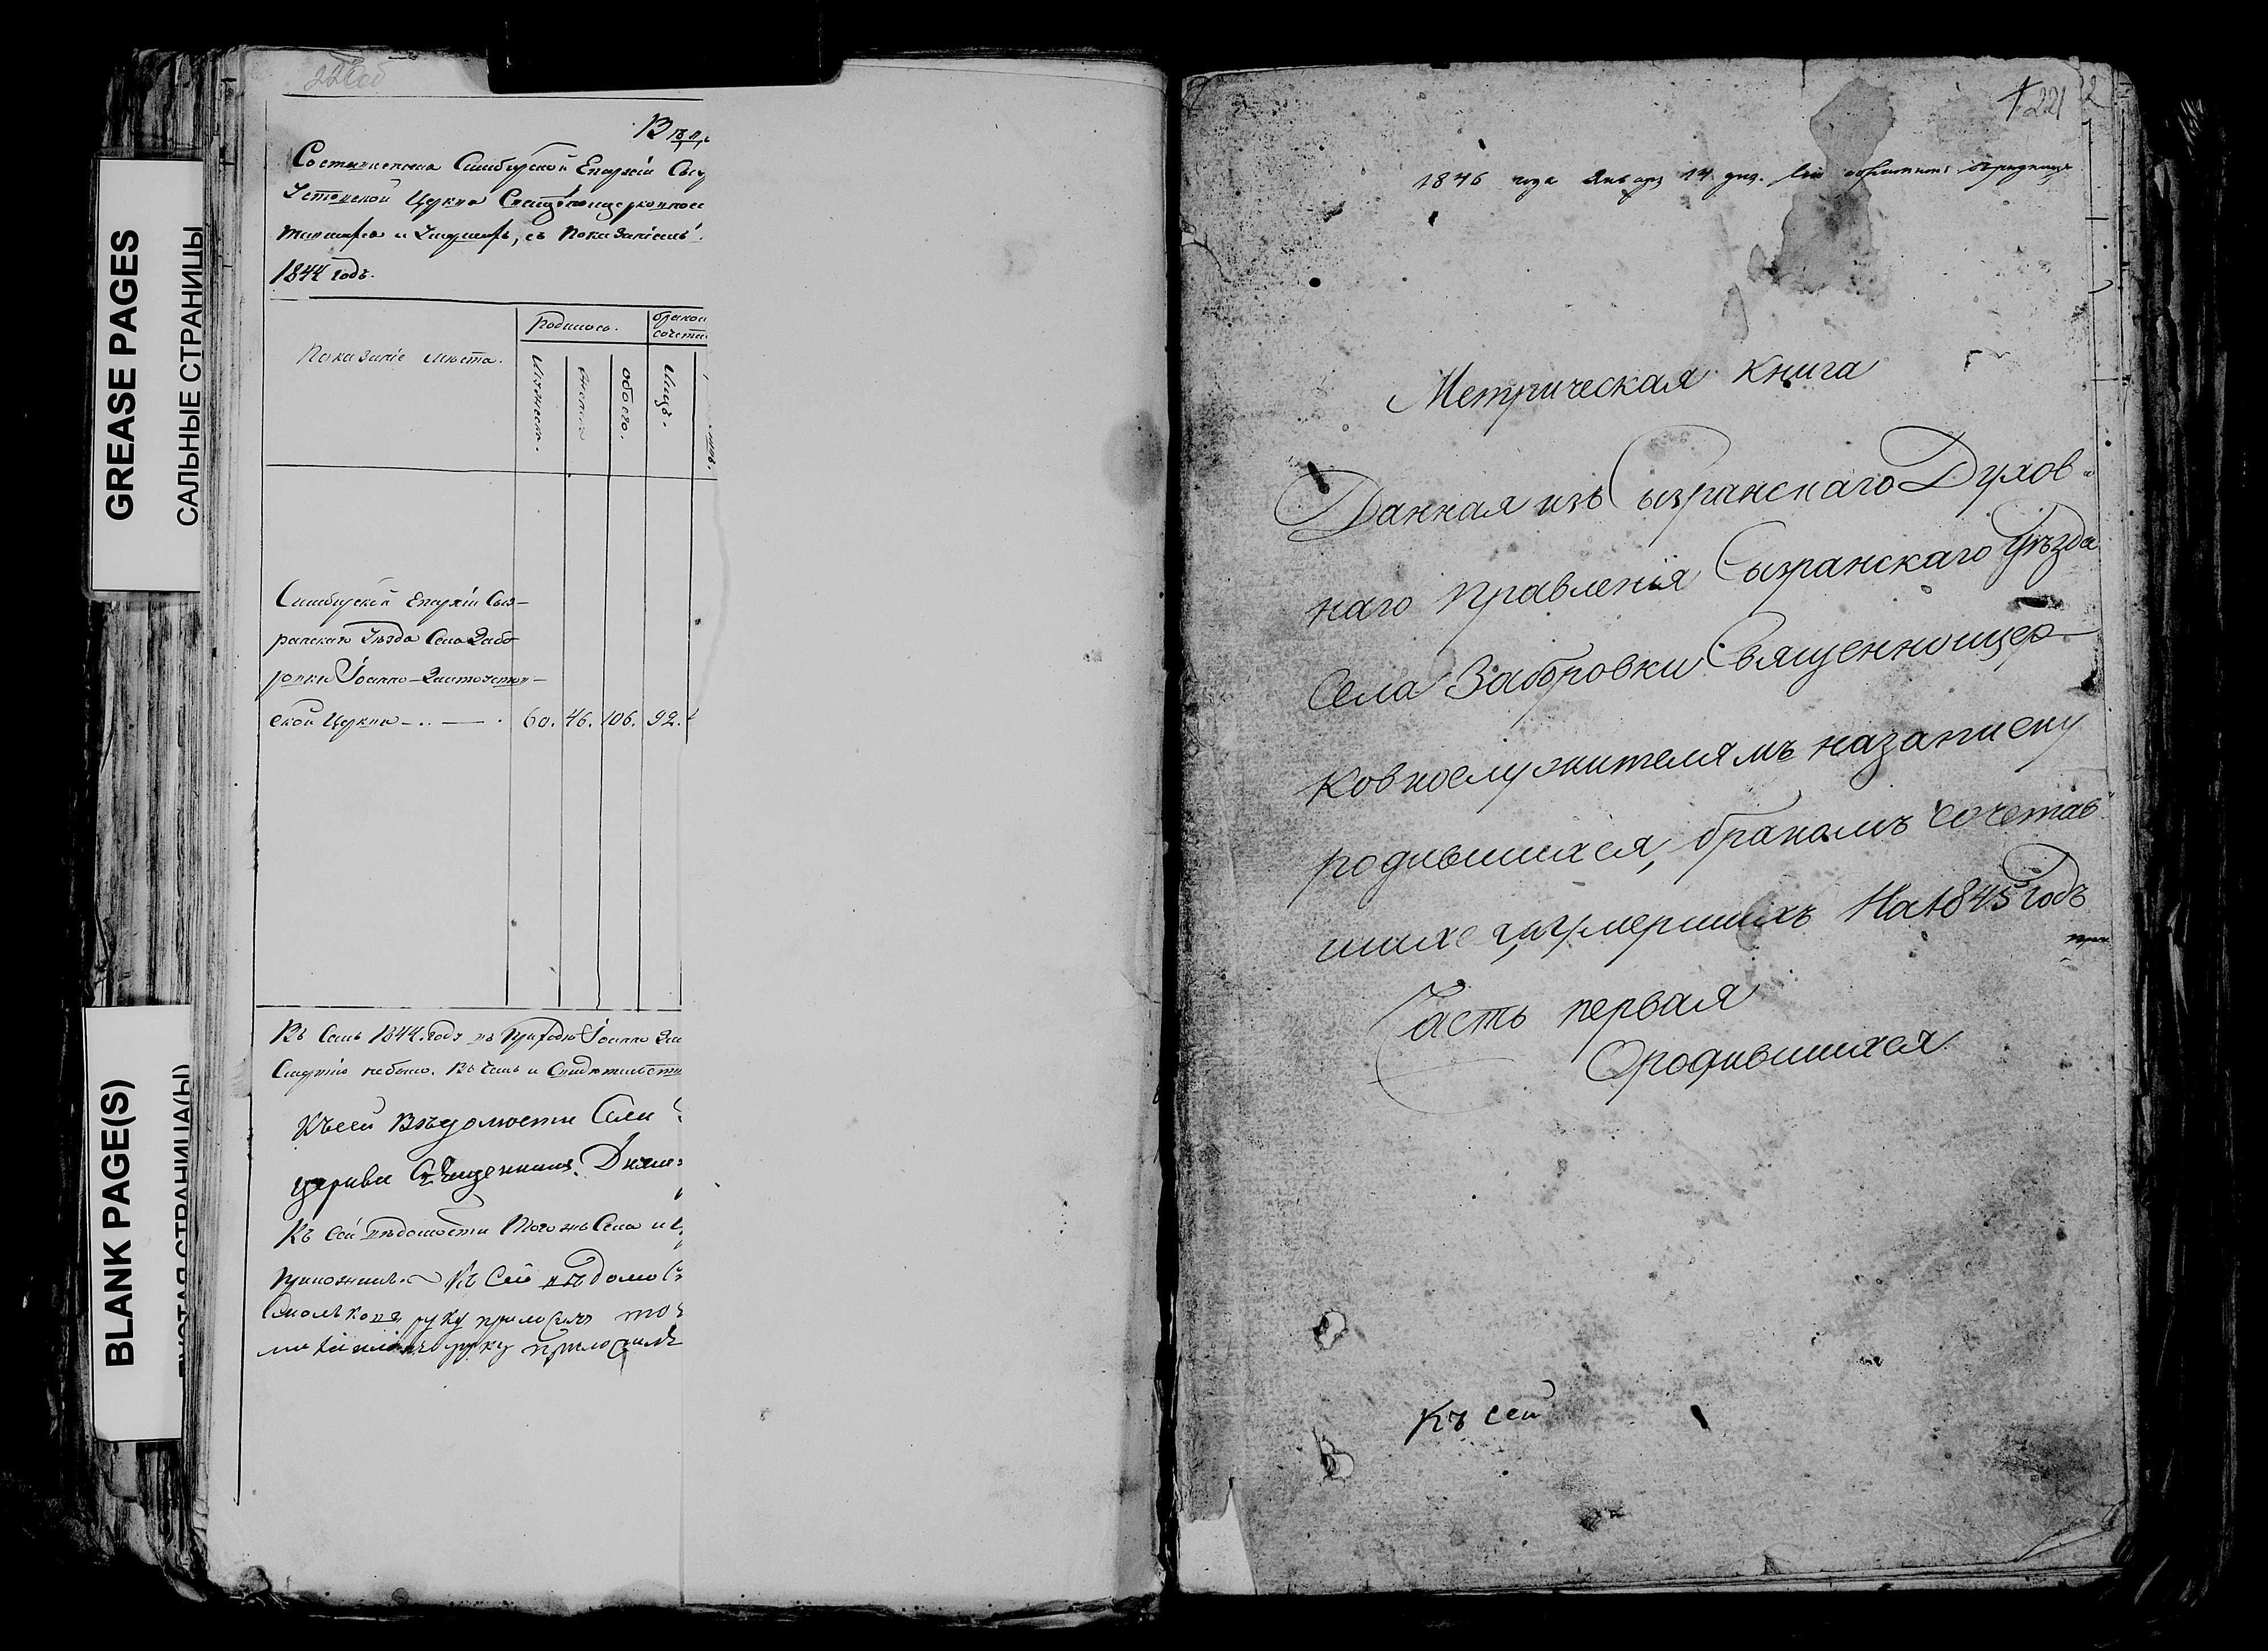 GREASE PAGES
САЛЬНЫЕ СТРАНИЦЫ
BLANK PAGE(S)
220об
Вѣд
Симбирской Епархіи Сыз
Церкви Священноцерковнос
съ показаніемъ
1844 годъ.
Показаніе мѣста.
Родилось.
бракомъ
сочета
Мужеска.
Женска
обоего.
Лицъ.
Симбирской Епархіи Сыз-
ранскаго Уѣзда Села Забо-
ровки Іоанно-Златоустов-
ской Церкви
60. 46. 106. 92.
Въ семъ 1844. году въ приходѣ Іоанно Зла
не было. Въ чемъ и Свидѣтельств
Къ сей Вѣдомости Села
церкви Священникъ
Къ сей вѣдомости Того жъ Села и
приложилъ. Къ сей вѣдомос
руку приложилъ то
руку приложилъ
221 2
1846 года Января 14 дня.
Метрическая книга
Данная изъ Сызранскаго Духов-
наго Правленія Сызранскаго Уѣзда
Села Заборовки Священноцер-
ковнослужителямъ на записку
родившихся, бракомъ сочетав
шихся, и умершихъ На 1845 Годъ
Часть первая
О родившихся
Къ сей